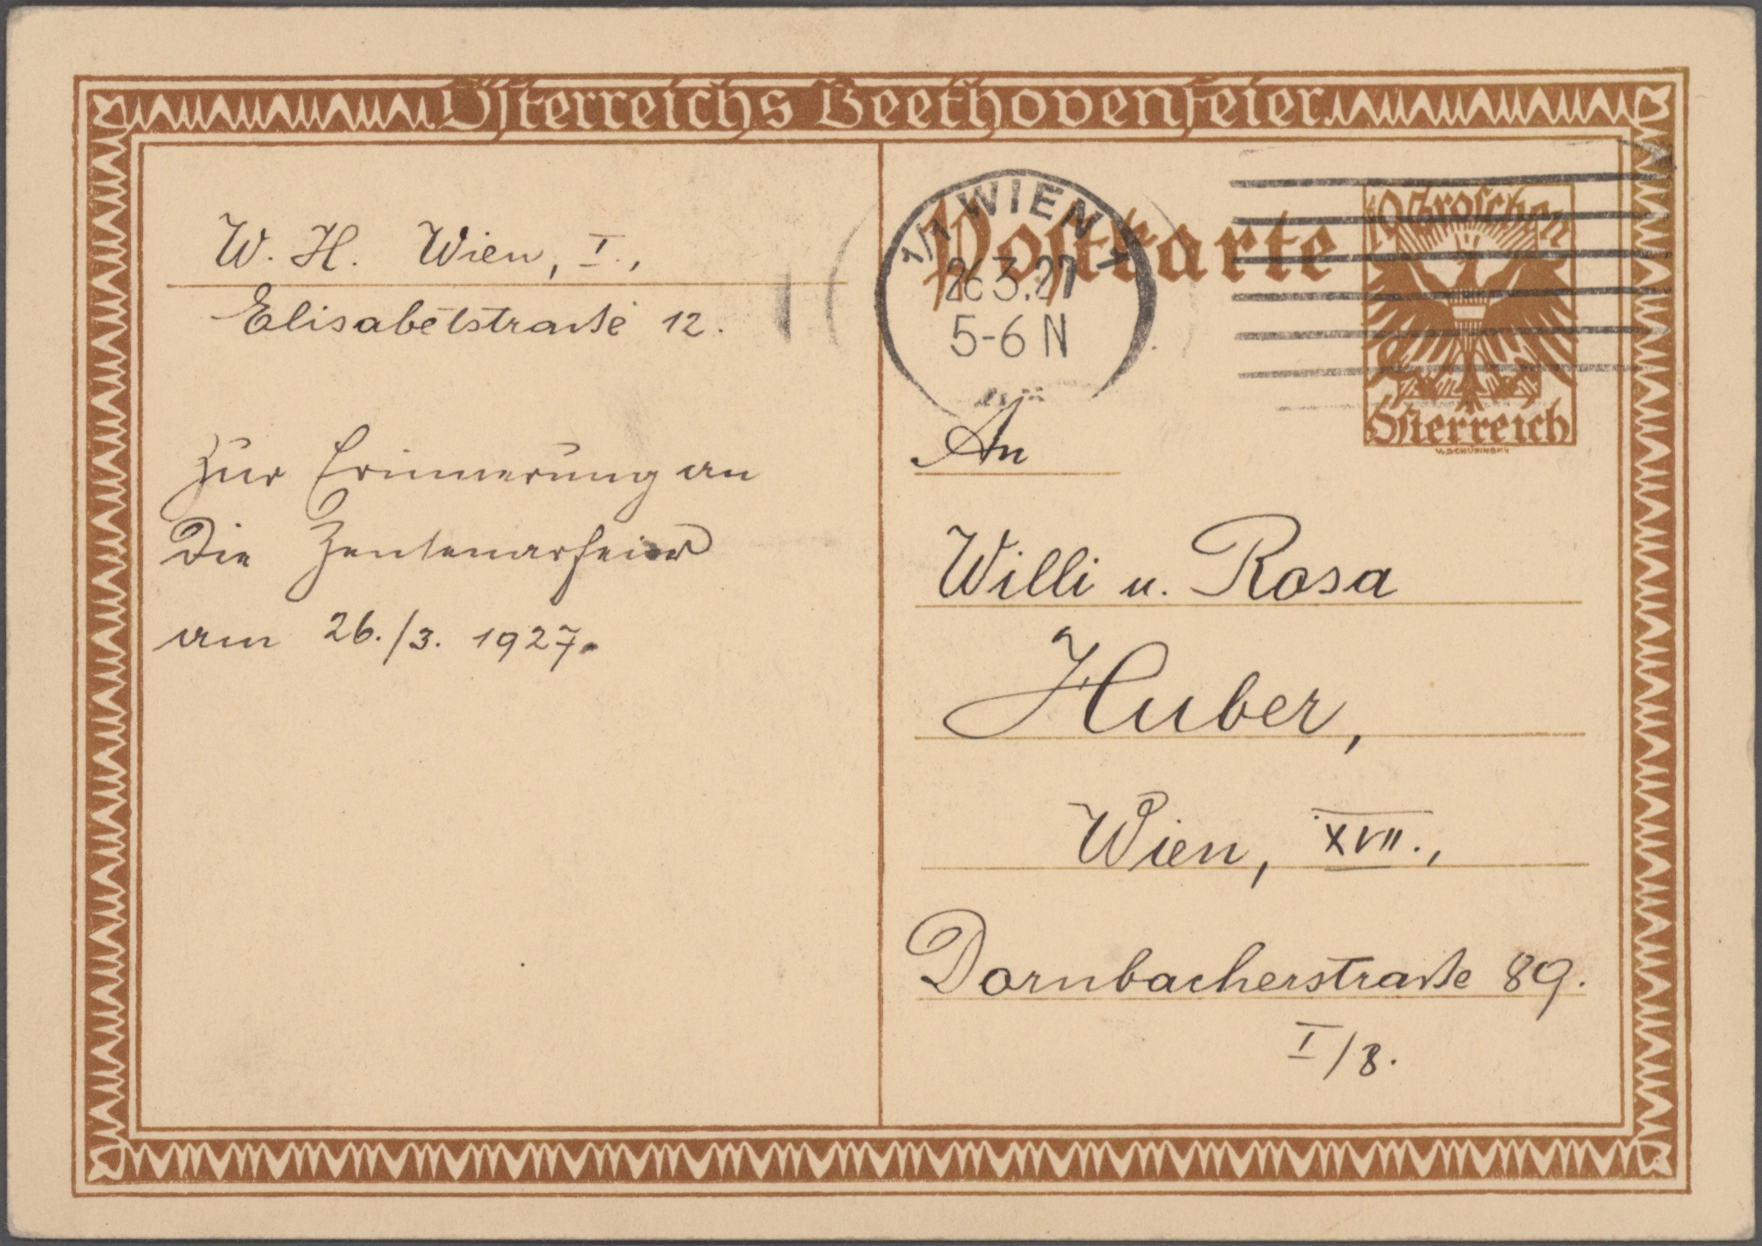 Österreichs Beethovenfeier
W. H. Wien, I.,
Elisabetstraße 12.
Zur Erinnerung an
die Zentenarfeier
am 26./3. 1927.
Postkarte
1/1 WIEN 1
26.3.27
5-6 N
10 Groschen
Österreich
An
Willi u. Rosa
Huber,
Wien, XVII.,
Dornbacherstraße 89.
I/8.